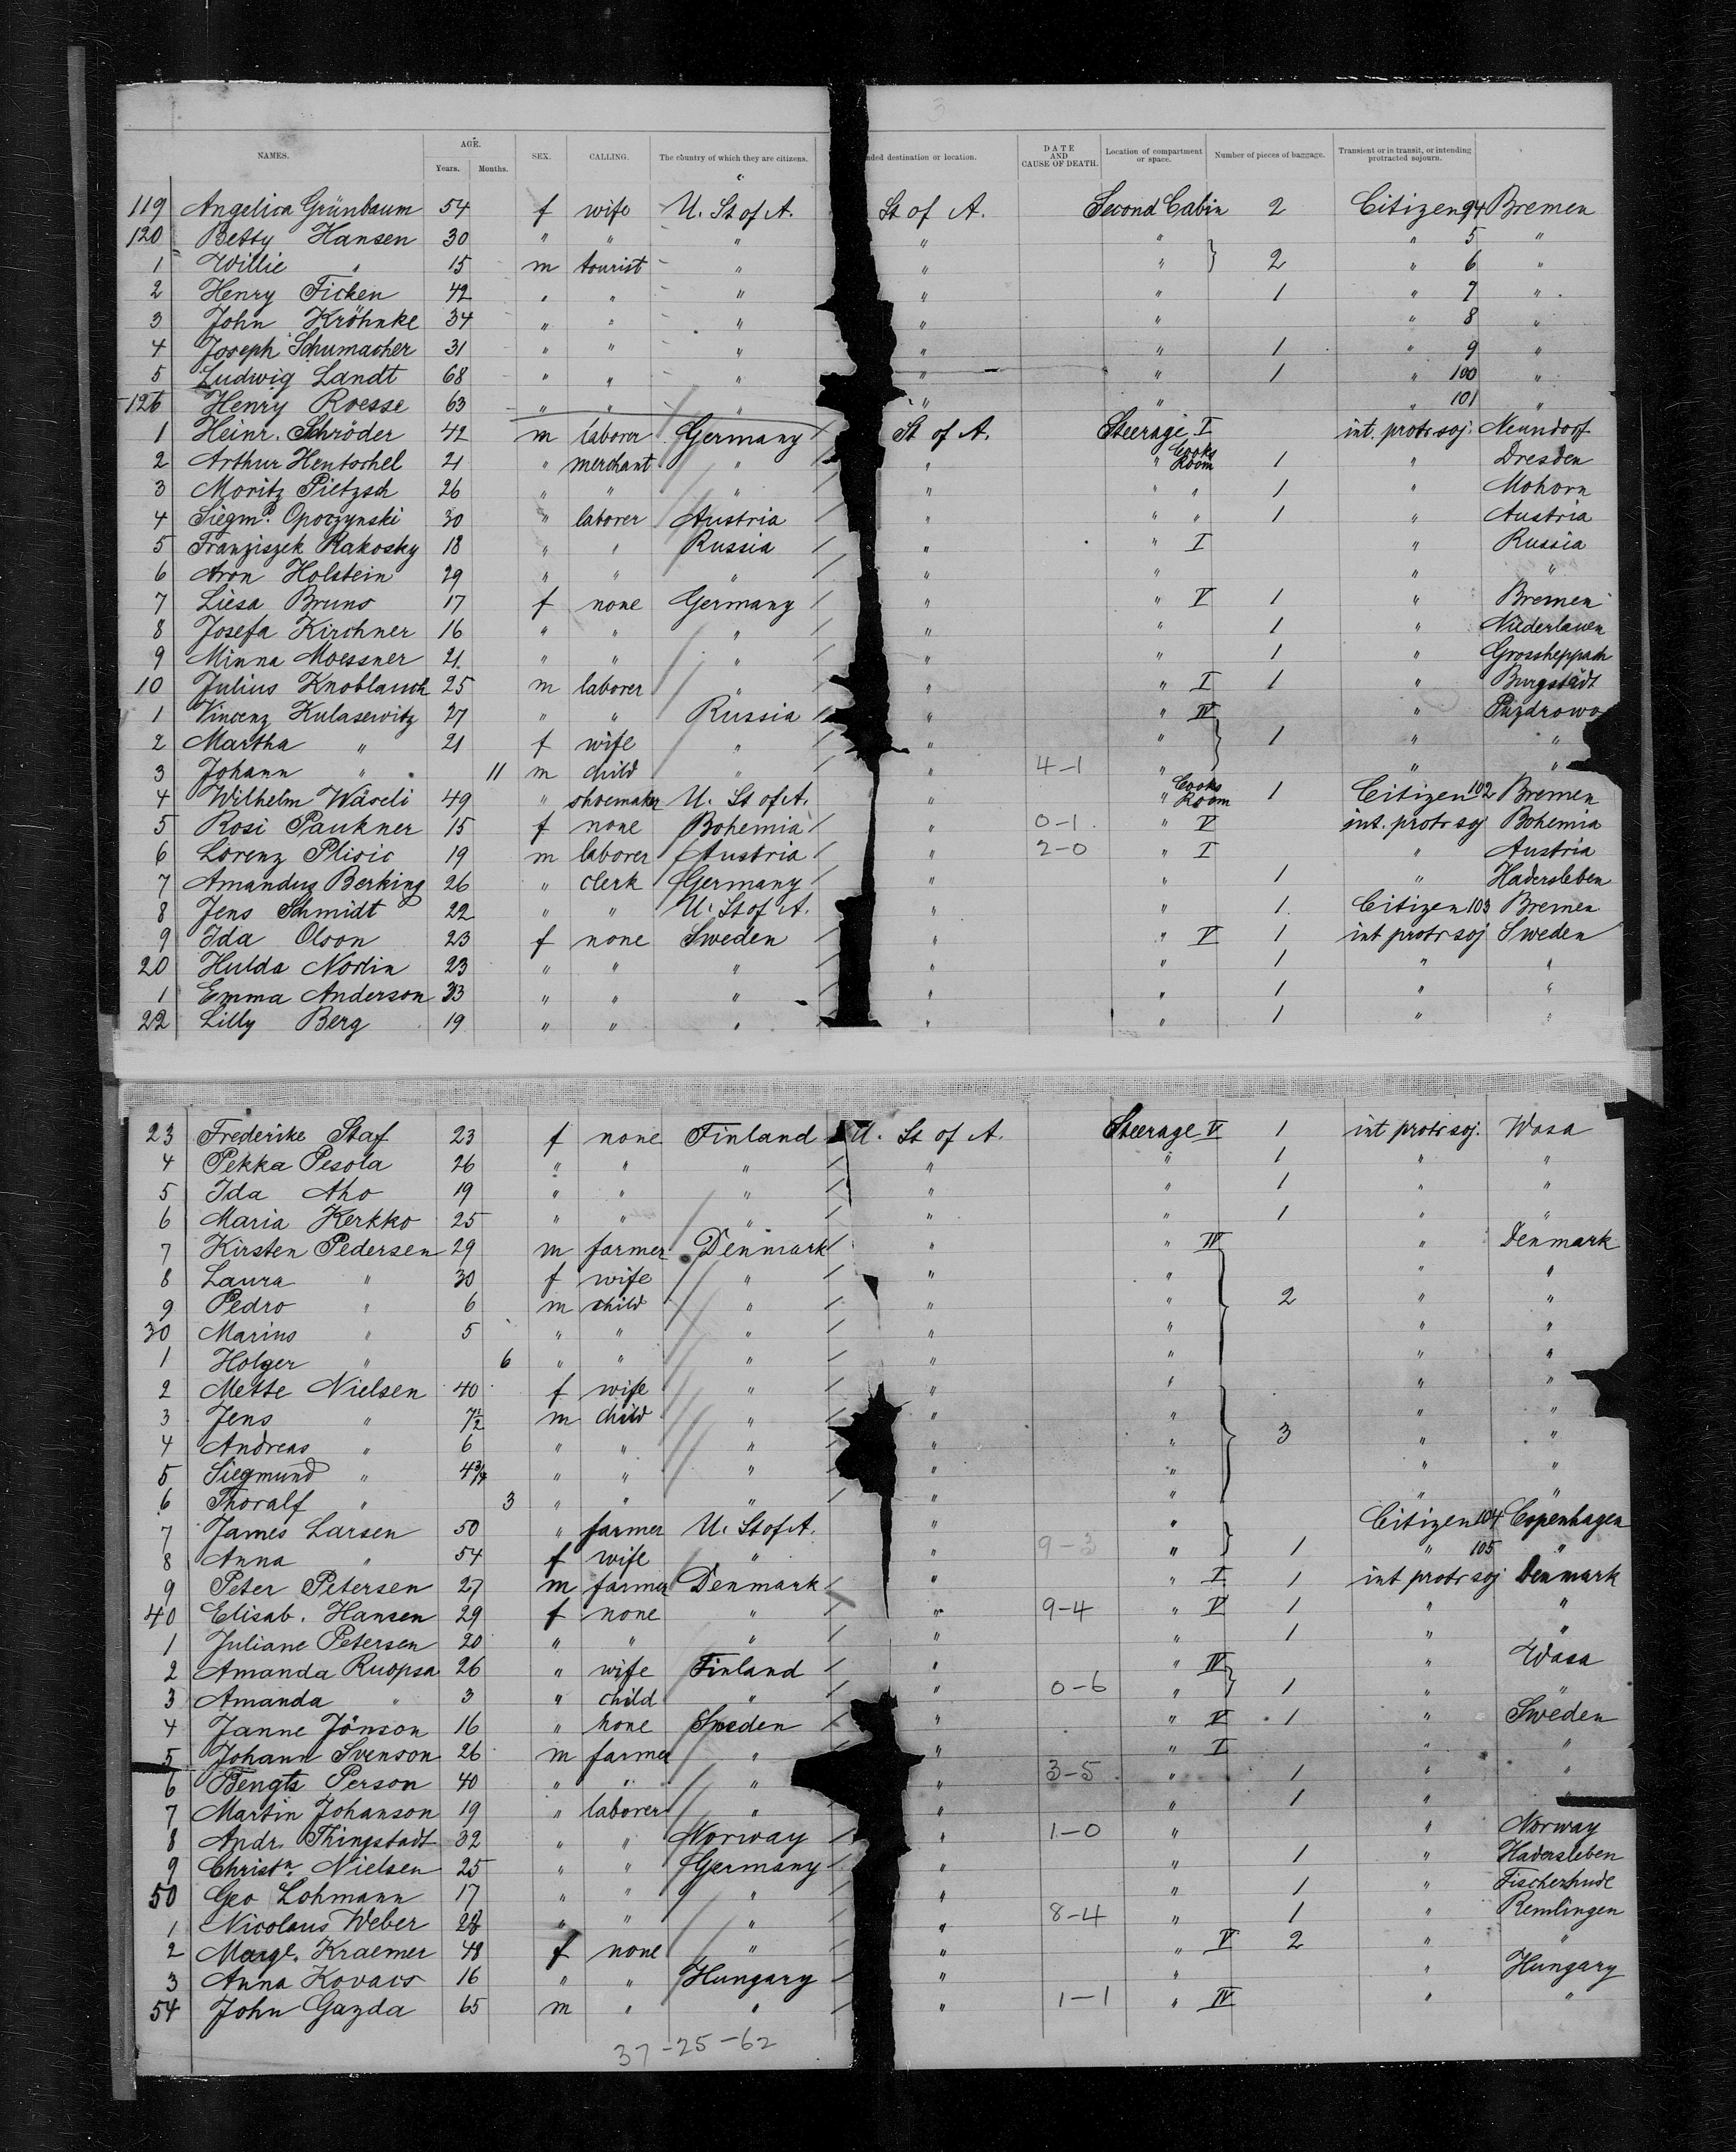 3
NAMES. AGE. Years. Months. SEX. CALLING. The country of which they are citizens. nded destination or location. DATE AND CAUSE OF DEATH. Location of compartment or space. Number of pieces of baggage. Transient or in transit, or intending protracted sojourn.
119 Angelica Grünbaum 54 f wife U. St of A. St of A. Second Cabin 2 Citizen 94 Bremen
120 Betty Hansen 30 " " " " " " 5 "
1 Willie " 15 m tourist " " " } 2 " 6 "
2 Henry Ficken 42 " " " " " 1 " 7 "
3 John Kröhnke 34 " " " " " " 8 "
4 Joseph Schumacher 31 " " " " " 1 " 9 "
5 Ludwig Landt 68 " " " " " 1 " 100 "
126 Henry Roesse 63 " " " " " " 101 "
1 Heinr. Schröder 42 m laborer Germany St of A. Steerage I int. protr. soj. Neundorf
2 Arthur Hentschel 21 " merchant " " " Cooks Room 1 " Dresden
3 Moritz Pietzsch 26 " " " " " " 1 " Mohorn
4 Siegmd. Opoczynski 30 " laborer Austria " " " 1 " Austria
5 Franziszek Rakosky 18 " " Russia " " I " Russia
6 Aron Holstein 29 " " " " " " "
7 Liesa Bruns 17 f none Germany " " V 1 " Bremen
8 Josefa Kirchner 16 " " " " " 1 " Niederlauen
9 Minna Moessner 21 " " " " " 1 " Grossheppach
10 Julius Knoblauch 25 m laborer " " " I 1 " Burgstädt
1 Vincenz Kulasewitz 27 " " Russia " " IV " Puzdrowo
2 Martha " 21 f wife " " " } 1 " "
3 Johann " 11 m child " " 4-1 " " "
4 Wilhelm Wäseli 49 " shoemaker U. St of A. " " Cooks Room 1 Citizen 102 Bremen
5 Rosi Paukner 15 f none Bohemia " 0-1 " V int. protr soj Bohemia
6 Lorenz Plisic 19 m laborer Austria " 2-0 " I " Austria
7 Amandus Berking 26 " clerk Germany " " 1 " Hadersleben
8 Jens Schmidt 22 " " U. St of A. " " 1 Citizen 103 Bremen
9 Ida Olson 23 f none Sweden " " V 1 int protr soj Sweden
20 Hulda Norlin 23 " " " " " 1 " "
1 Emma Anderson 33 " " " " " 1 " "
22 Lilly Berg 19 " " " " " 1 " "
23 Frederike Staf 23 f none Finland U. St of A. Steerage V 1 int protr soj. Wasa
4 Pekka Pesola 26 " " " " " 1 " "
5 Ida Aho 19 " " " " " 1 " "
6 Maria Kerkko 25 " " " " " 1 " "
7 Kirsten Pedersen 29 m farmer Denmark " " IV " Denmark
8 Laura " 30 f wife " " " " "
9 Pedro " 6 m child " " " } 2 " "
30 Marius " 5 " " " " " " "
1 Holger " 6 " " " " " " "
2 Mette Nielsen 40 f wife " " " " "
3 Jens " 7½ m child " " " " "
4 Andreas " 6 " " " " " } 3 " "
5 Siegmund " 4¾ " " " " " " "
6 Thoralf " 3 " " " " " " "
7 James Larsen 50 " farmer U. St of A. " " Citizen 104 Copenhagen
8 Anna " 54 f wife " " 9-3 " } 1 " 105 "
9 Peter Petersen 27 m farmer Denmark " " I 1 int protr soj Denmark
40 Elisab. Hansen 29 f none " " 9-4 " V 1 " "
1 Juliane Petersen 20 " " " " " 1 " "
2 Amanda Ruopsa 26 " wife Finland " " IV " Wasa
3 Amanda " 3 " child " " 0-6 " } 1 " "
4 Janne Jönson 16 " none Sweden " " V 1 " Sweden
5 Johann Svenson 26 m farmer " " " I " "
6 Bengts Person 40 " " " " 3-5 " 1 " "
7 Martin Johanson 19 " laborer " " " 1 " "
8 Andr. Thingstadt 32 " " Norway " 1-0 " " Norway
9 Christn. Nielsen 25 " " Germany " " 1 " Hadersleben
50 Geo Lohmann 17 " " " " " 1 " Fischerhude
1 Nicolaus Weber 28 " " " " 8-4 " 1 " Remlingen
2 Margt. Kraemer 48 f none " " " V 2 " "
3 Anna Kovacs 16 " " Hungary " " " Hungary
54 John Gazda 65 m " " " 1-1 " IV " "
37-25-62